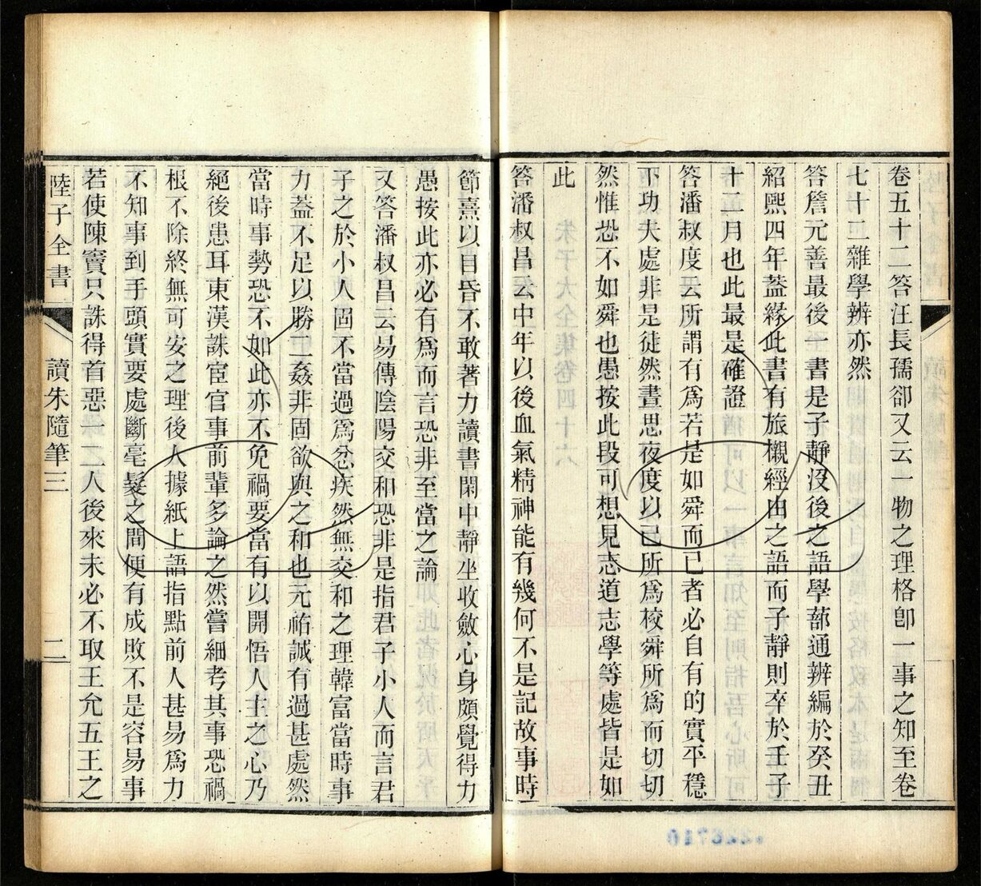 卷五十二答汪長孺卻又云一物之理格卽一事之知至卷
七十二雜學辨亦然
答詹元善最後一書是子靜沒後之語學蔀通辨編於癸丑
紹熙四年蓋緣此書有旅櫬經由之語而子靜則卒於壬子
十二月也此最是確證
答潘叔度云所謂有爲若是如舜而已者必自有的實平穩
下功夫處非是徒然晝思夜度以己所爲校舜所爲而切切
然惟恐不如舜也愚按此段可想見志道志學等處皆是如
此
答潘叔昌云中年以後血氣精神能有幾何不是記故事時
節熹以目昏不敢著力讀書閑中靜坐收斂心身頗覺得力
愚按此亦必有爲而言恐非至當之論
又答潘叔昌云易傳陰陽交和恐非是指君子小人而言君
子之於小人固不當過爲忿疾然無交和之理韓富當時事
力蓋不足以勝二姦非固欲與之和也元祐誠有過甚處然
當時事勢恐不如此亦不免禍要當有以開悟人主之心乃
絕後患耳東漢誅宦官事前輩多論之然嘗細考其事恐禍
根不除終無可安之理後人據紙上語指點前人甚易爲力
不知事到手頭實要處斷毫髮之間便有成敗不是容易事
若使陳竇只誅得首惡一二人後來未必不取王允五王之
陸子全書
讀朱隨筆三
二